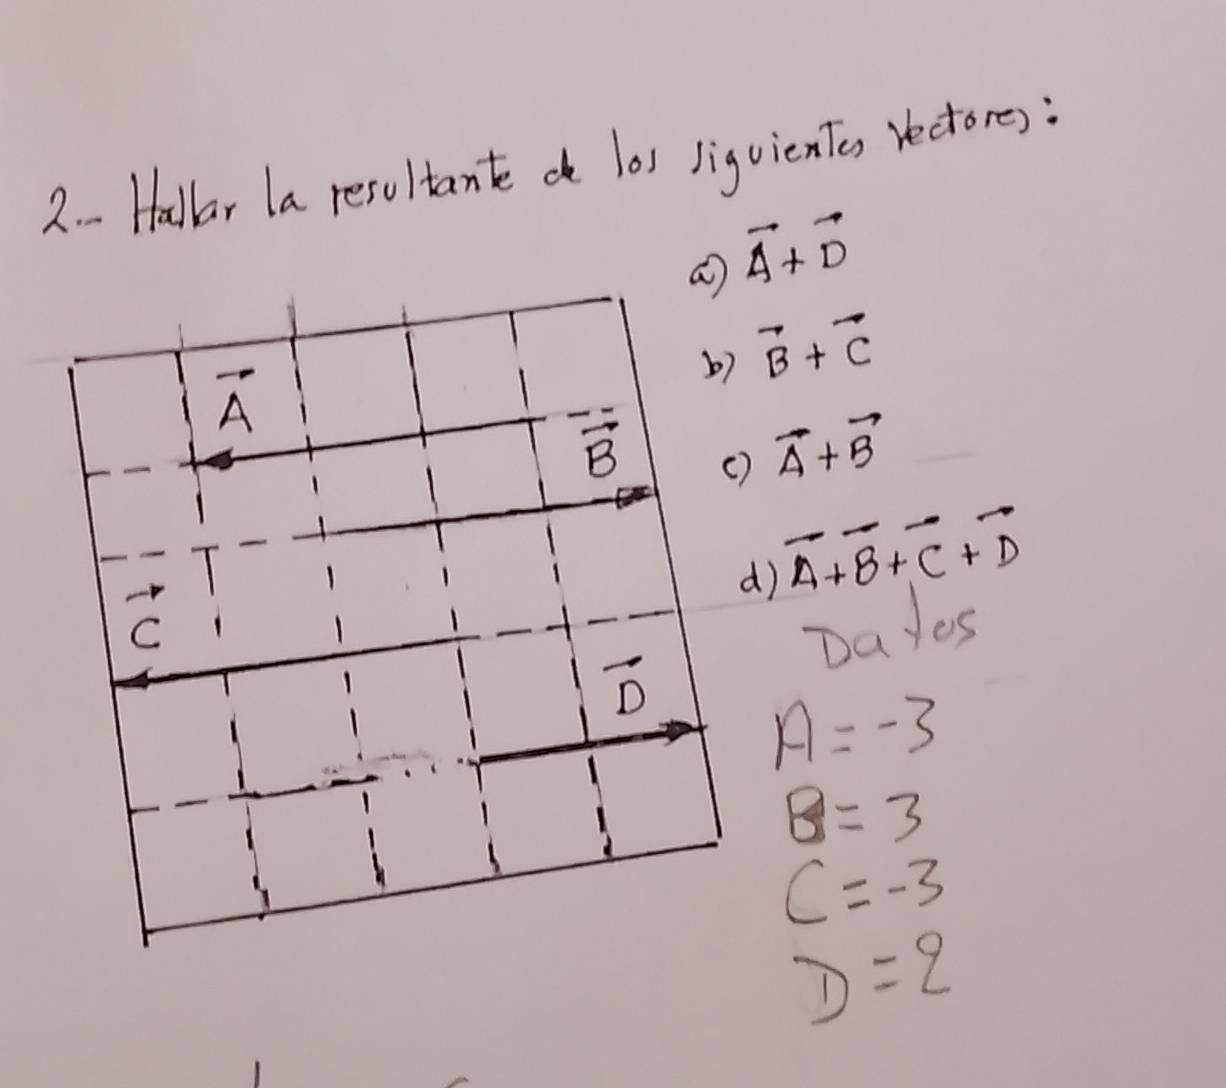 2.- Hallar la resultante de los siguientes vectores:
a) A⃗ + D⃗
b) B⃗ + C⃗
c) A⃗ + B⃗
d) A⃗ + B⃗ + C⃗ + D⃗
A⃗
B⃗
C⃗
D⃗
Datos
A = -3
B = 3
C = -3
D = 2